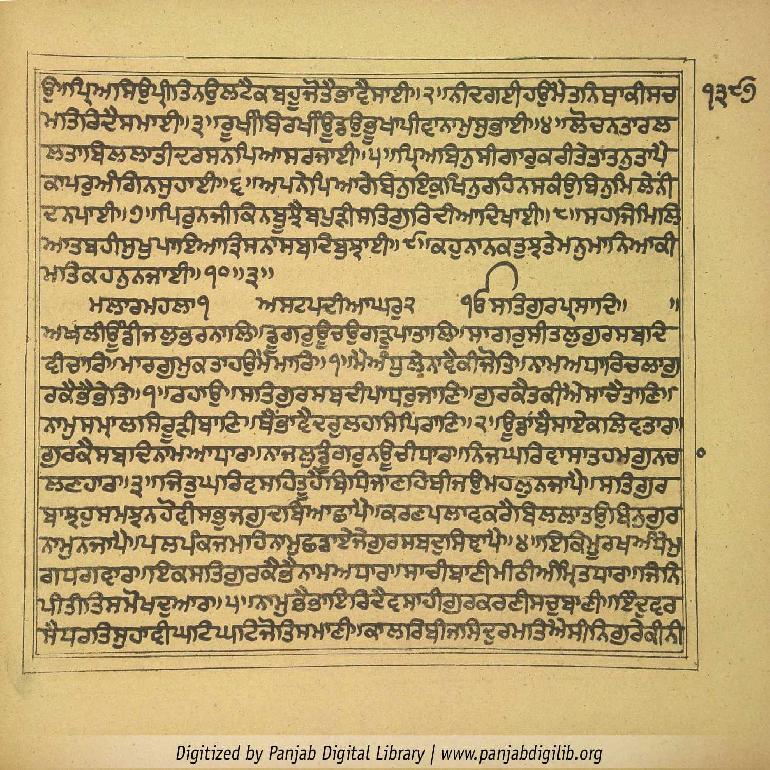 ੧੩੮੭
ਉਅਪ੍ਰਿਆਸਿਉਪ੍ਰੀਤਿਨਉਲਟੈਕਬਹੂਜੋਤੈਭਾਵੈਸਾਈ॥੨॥ਨੀਦਗਈਹਉਮੈਤਨਿਥਾਕੀਸਚ
ਮਤਿਰਿਦੈਸਮਾਈ॥੩॥ਰੂਖੀਬਿਰਖੀਊਡਉਭੂਖਾਪੀਵਾਨਾਮੁਸੁਭਾਈ॥੪॥ਲੋਚਨਤਾਰਲ
ਲਤਾਬਿਲਲਾਤੀਦਰਸਨਪਿਆਸਰਜਾਈ॥੫॥ਪ੍ਰਿਅਬਿਨੁਸੀਗਾਰੁਕਰੀਤੇਤਾਤਨੁਤਾਪੈ
ਕਾਪਰੁਅੰਗਿਨਸੁਹਾਈ॥੬॥ਅਪਨੇਪਿਆਰੇਬਿਨੁਇਕੁਖਿਨੁਰਹਿਨਸਕੰਉਬਿਨੁਮਿਲੇਨੀ
ਦਨਪਾਈ॥੭॥ਪਿਰੁਨਜੀਕਿਨਬੂਝੈਬਪੁੜੀਸਤਿਗੁਰਿਦੀਆਦਿਖਾਈ॥੮॥ਸਹਜਿਮਿਲਿ
ਆਤਬਹੀਸੁਖੁਪਾਇਆਤ੍ਰਿਸਨਾਸਬਦਿਬੁਝਾਈ॥੯॥ਕਹੁਨਾਨਕਤੁਝਤੇਮਨੁਮਾਨਿਆਕੀ
ਮਤਿਕਹਨੁਨਜਾਈ॥੧੦॥੩॥
ਮਲਾਰਮਹਲਾ੧ ਅਸਟਪਦੀਆਘਰੁ੨ ੴਸਤਿਗੁਰਪ੍ਰਸਾਦਿ॥ ॥
ਅਖਲੀਊਂਡੀਜਲੁਭਰਨਾਲਿ॥ਡੂਗਰੁਊਚਉਗੜੁਪਾਤਾਲਿ॥ਸਾਗਰੁਸੀਤਲੁਗੁਰਸਬਦਿ
ਵੀਚਾਰਿ॥ਮਾਰਗੁਮੁਕਤਾਹਉਮੈਮਾਰਿ॥੧॥ਮੈਅੰਧੁਲੇਨਾਵੈਕੀਜੋਤਿ॥ਨਾਮਅਧਾਰਿਚਲਾਗੁ
ਰਕੈਭੈਭੇਤਿ॥੧॥ਰਹਾਉ॥ਸਤਿਗੁਰਸਬਦੀਪਾਧਰੁਜਾਣਿ॥ਗੁਰਕੈਤਕੀਐਸਾਚੈਤਾਣਿ॥
ਨਾਮੁਸਮ੍ਹਾਲਸਿਰੂੜੀਬਾਣਿ॥ਥੈਂਭਾਵੈਦਰੁਲਹਸਿਪਿਰਾਣਿ॥੨॥ਊਡਾਂਬੈਸਾਏਕਲਿਵਤਾਰ॥
ਗੁਰਕੈਸਬਦਿਨਾਮਆਧਾਰ॥ਨਾਜਲੁਡੂੰਗਰੁਨਊਚੀਧਾਰ॥ਨਿਜਘਰਿਵਾਸਾਤਹਮਗੁਨਚ
ਲਣਹਾਰ॥੩॥ਜਿਤੁਘਰਿਵਸਹਿਤੂਹੈਬਿਧਿਜਾਣਹਿਬੀਜਉਮਹਲੁਨਜਾਪੈ॥ਸਤਿਗੁਰ
ਬਾਝਹੁਸਮਝਨਹੋਵੀਸਭੁਜਗੁਦਬਿਆਛਾਪੈ॥ਕਰਣਪਲਾਵਕਰੈਬਿਲਲਾਤਉਬਿਨੁਗੁਰ
ਨਾਮੁਨਜਾਪੈ॥ਪਲਪੰਕਜਮਹਿਨਾਮੁਛਡਾਏਜੇਗੁਰਸਬਦੁਸਿਞਾਪੈ॥੪॥ਇਕਿਮੂਰਖਅੰਧੇਮੁ
ਗਧਗਵਾਰ॥ਇਕਸਤਿਗੁਰਕੈਭੈਨਾਮਅਧਾਰ॥ਸਾਚੀਬਾਣੀਮੀਠੀਅੰਮ੍ਰਿਤਧਾਰ॥ਜਿਨਿ
ਪੀਤੀਤਿਸਮੋਖਦੁਆਰ॥੫॥ਨਾਮੁਭੈਭਾਇਰਿਦੈਵਸਾਹੀਗੁਰਕਰਣੀਸਚੁਬਾਣੀ॥ਇੰਦੁਵਰ
ਸੈਧਰਤਿਸੁਹਾਵੀਘਟਿਘਟਿਜੋਤਿਸਮਾਣੀ॥ਕਾਲਰਿਬੀਜਸਿਦੁਰਮਤਿਐਸੀਨਿਗੁਰੇਕੀਨੀ
Digitized by Panjab Digital Library | www.panjabdigilib.org